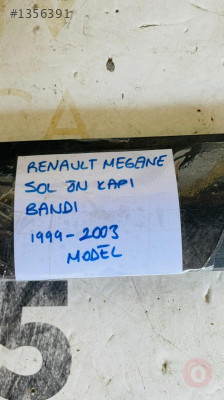 #1356391
RENAULT MEGANE
SOL ÖN KAPI
BANDI
1999-2003
MODEL
5